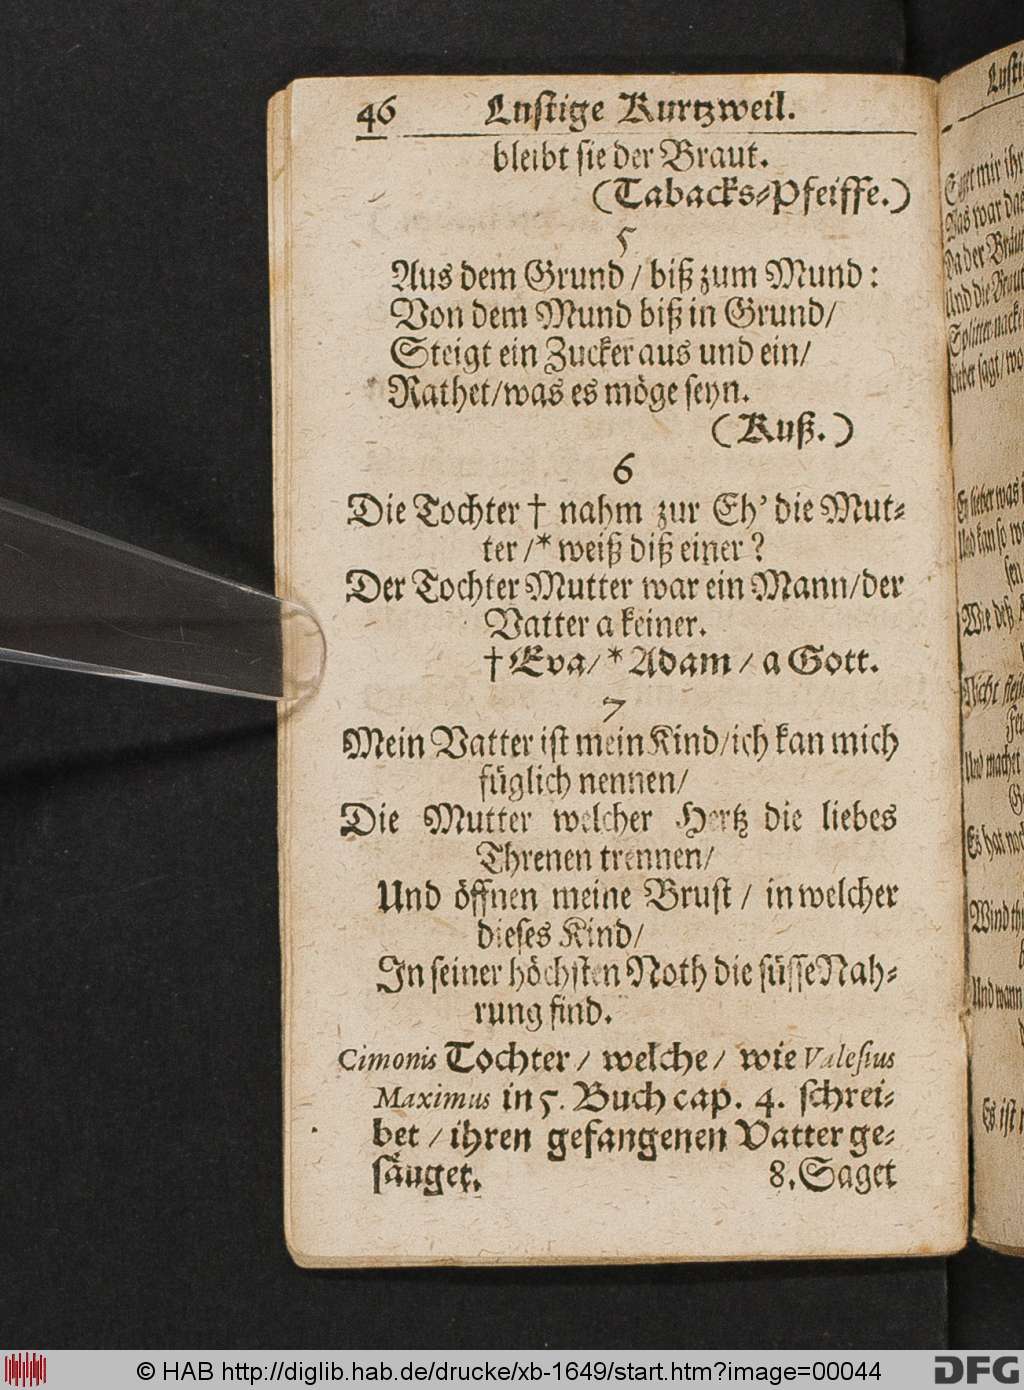 46 Lustige Kurtzweil.
bleibt sie der Braut.
(Tabacks-Pfeiffe.)
5
Aus dem Grund / biß zum Mund :
Von dem Mund biß in Grund/
Steigt ein Zucker aus und ein/
Rathet/was es möge seyn.
(Kuß.)
6
Die Tochter † nahm zur Eh' die Mut-
ter /* weiß diß einer ?
Der Tochter Mutter war ein Mann/der
Vatter a keiner.
† Eva/* Adam / a Gott.
7
Mein Vatter ist mein Kind/ich kan mich
füglich nennen/
Die Mutter welcher Hertz die liebes
Threnen trennen/
Und öffnen meine Brust / in welcher
dieses Kind/
In seiner höchsten Noth die süsse Nah-
rung find.
Cimonis Tochter / welche / wie Valesius
Maximus in 5. Buch cap. 4. schrei-
bet / ihren gefangenen Vatter ge-
säuget. 8. Saget
mir ihr
was war
Da der
Und die
sagt/
lieber was
Und kan so
Wie deß
Nicht
Und machet
Es hat noch
Wind
Und wann
Es ist
© HAB http://diglib.hab.de/drucke/xb-1649/start.htm?image=00044
DFG